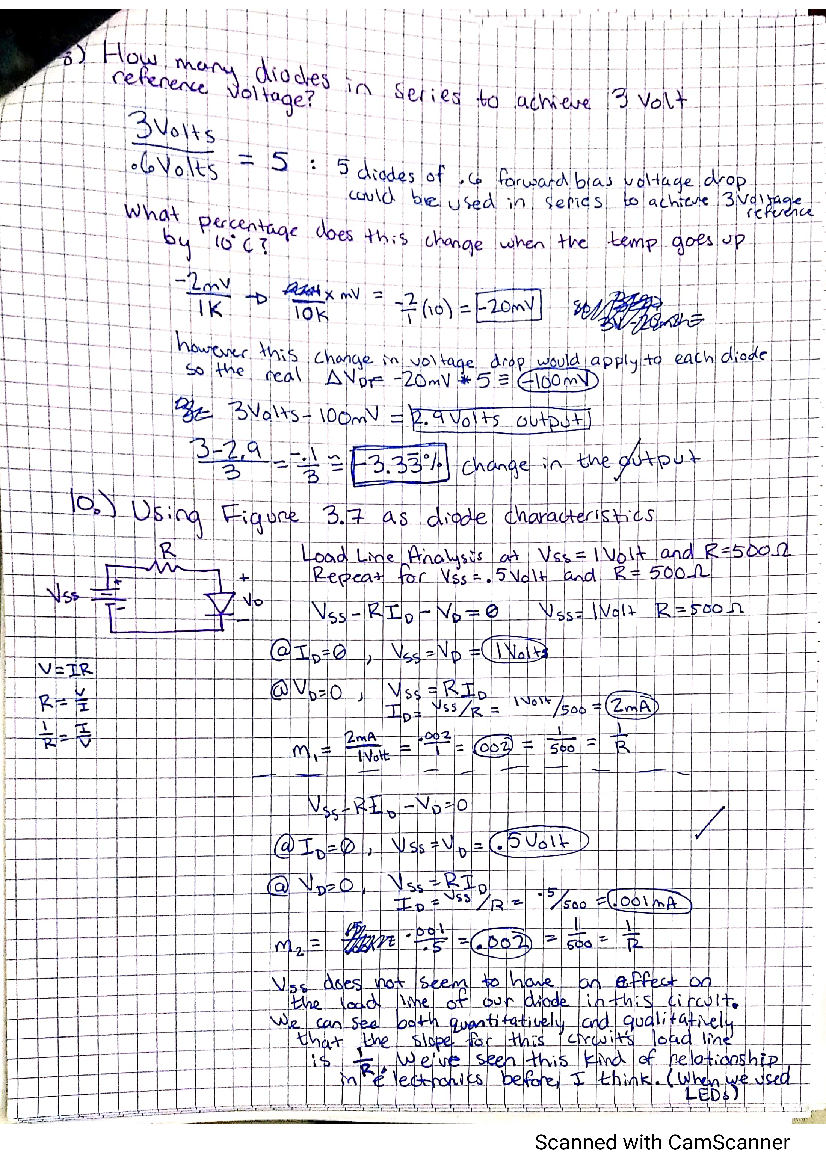 8) How many diodes in series to achieve 3 Volt
reference Voltage?
3 Volts / .6 Volts = 5 : 5 diodes of .6 forward bias voltage drop
could be used in series to achieve 3 Voltage
reference
What percentage does this change when the temp goes up
by 10°C?
-2mV / 1K → x mV / 10K = -2/1 (10) = -20mV
however this change in voltage drop would apply to each diode
so the real ΔVDT = -20mV * 5 = -100mV
3 Volts - 100mV = 2.9 Volts output
3-2.9 / 3 = -.1 / 3 ≅ -3.33% change in the output
10.) Using Figure 3.7 as diode characteristics
R
Load Line Analysis at Vss = 1 Volt and R=500Ω
Repeat for Vss = .5 Volt and R = 500Ω
Vss
+
-
+
VD
-
Vss - RID - VD = 0 Vss = 1 Volt R = 500Ω
@ ID=0 , Vss = VD = 1 Volts
V=IR
R= V/I
1/R = I/V
@ VD=0 , Vss = RID
ID = Vss/R = 1 Volt/500 = 2mA
m1 = 2mA / 1 Volt = .002 / 1 = .002 = 1/500 = 1/R
Vss - RID - VD = 0
@ ID=0 , Vss = VD = .5 Volt
@ VD=0 , Vss = RID
ID = Vss/R = .5/500 = .001mA
m2 = .001 / .5 = .002 = 1/500 = 1/R
Vss does not seem to have an effect on
the load line of our diode in this circuit.
We can see both quantitatively and qualitatively
that the slope for this circuit's load line
is 1/R. We've seen this kind of relationship
in electronics before, I think. (When we used
LEDs)
Scanned with CamScanner